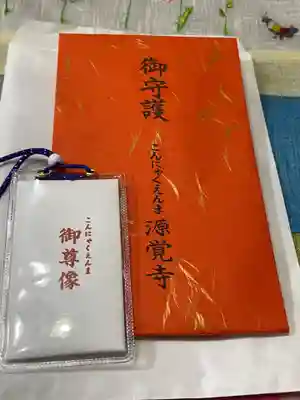 御守護
こんにゃくえんま
源覚寺
こんにゃくえんま
御尊像